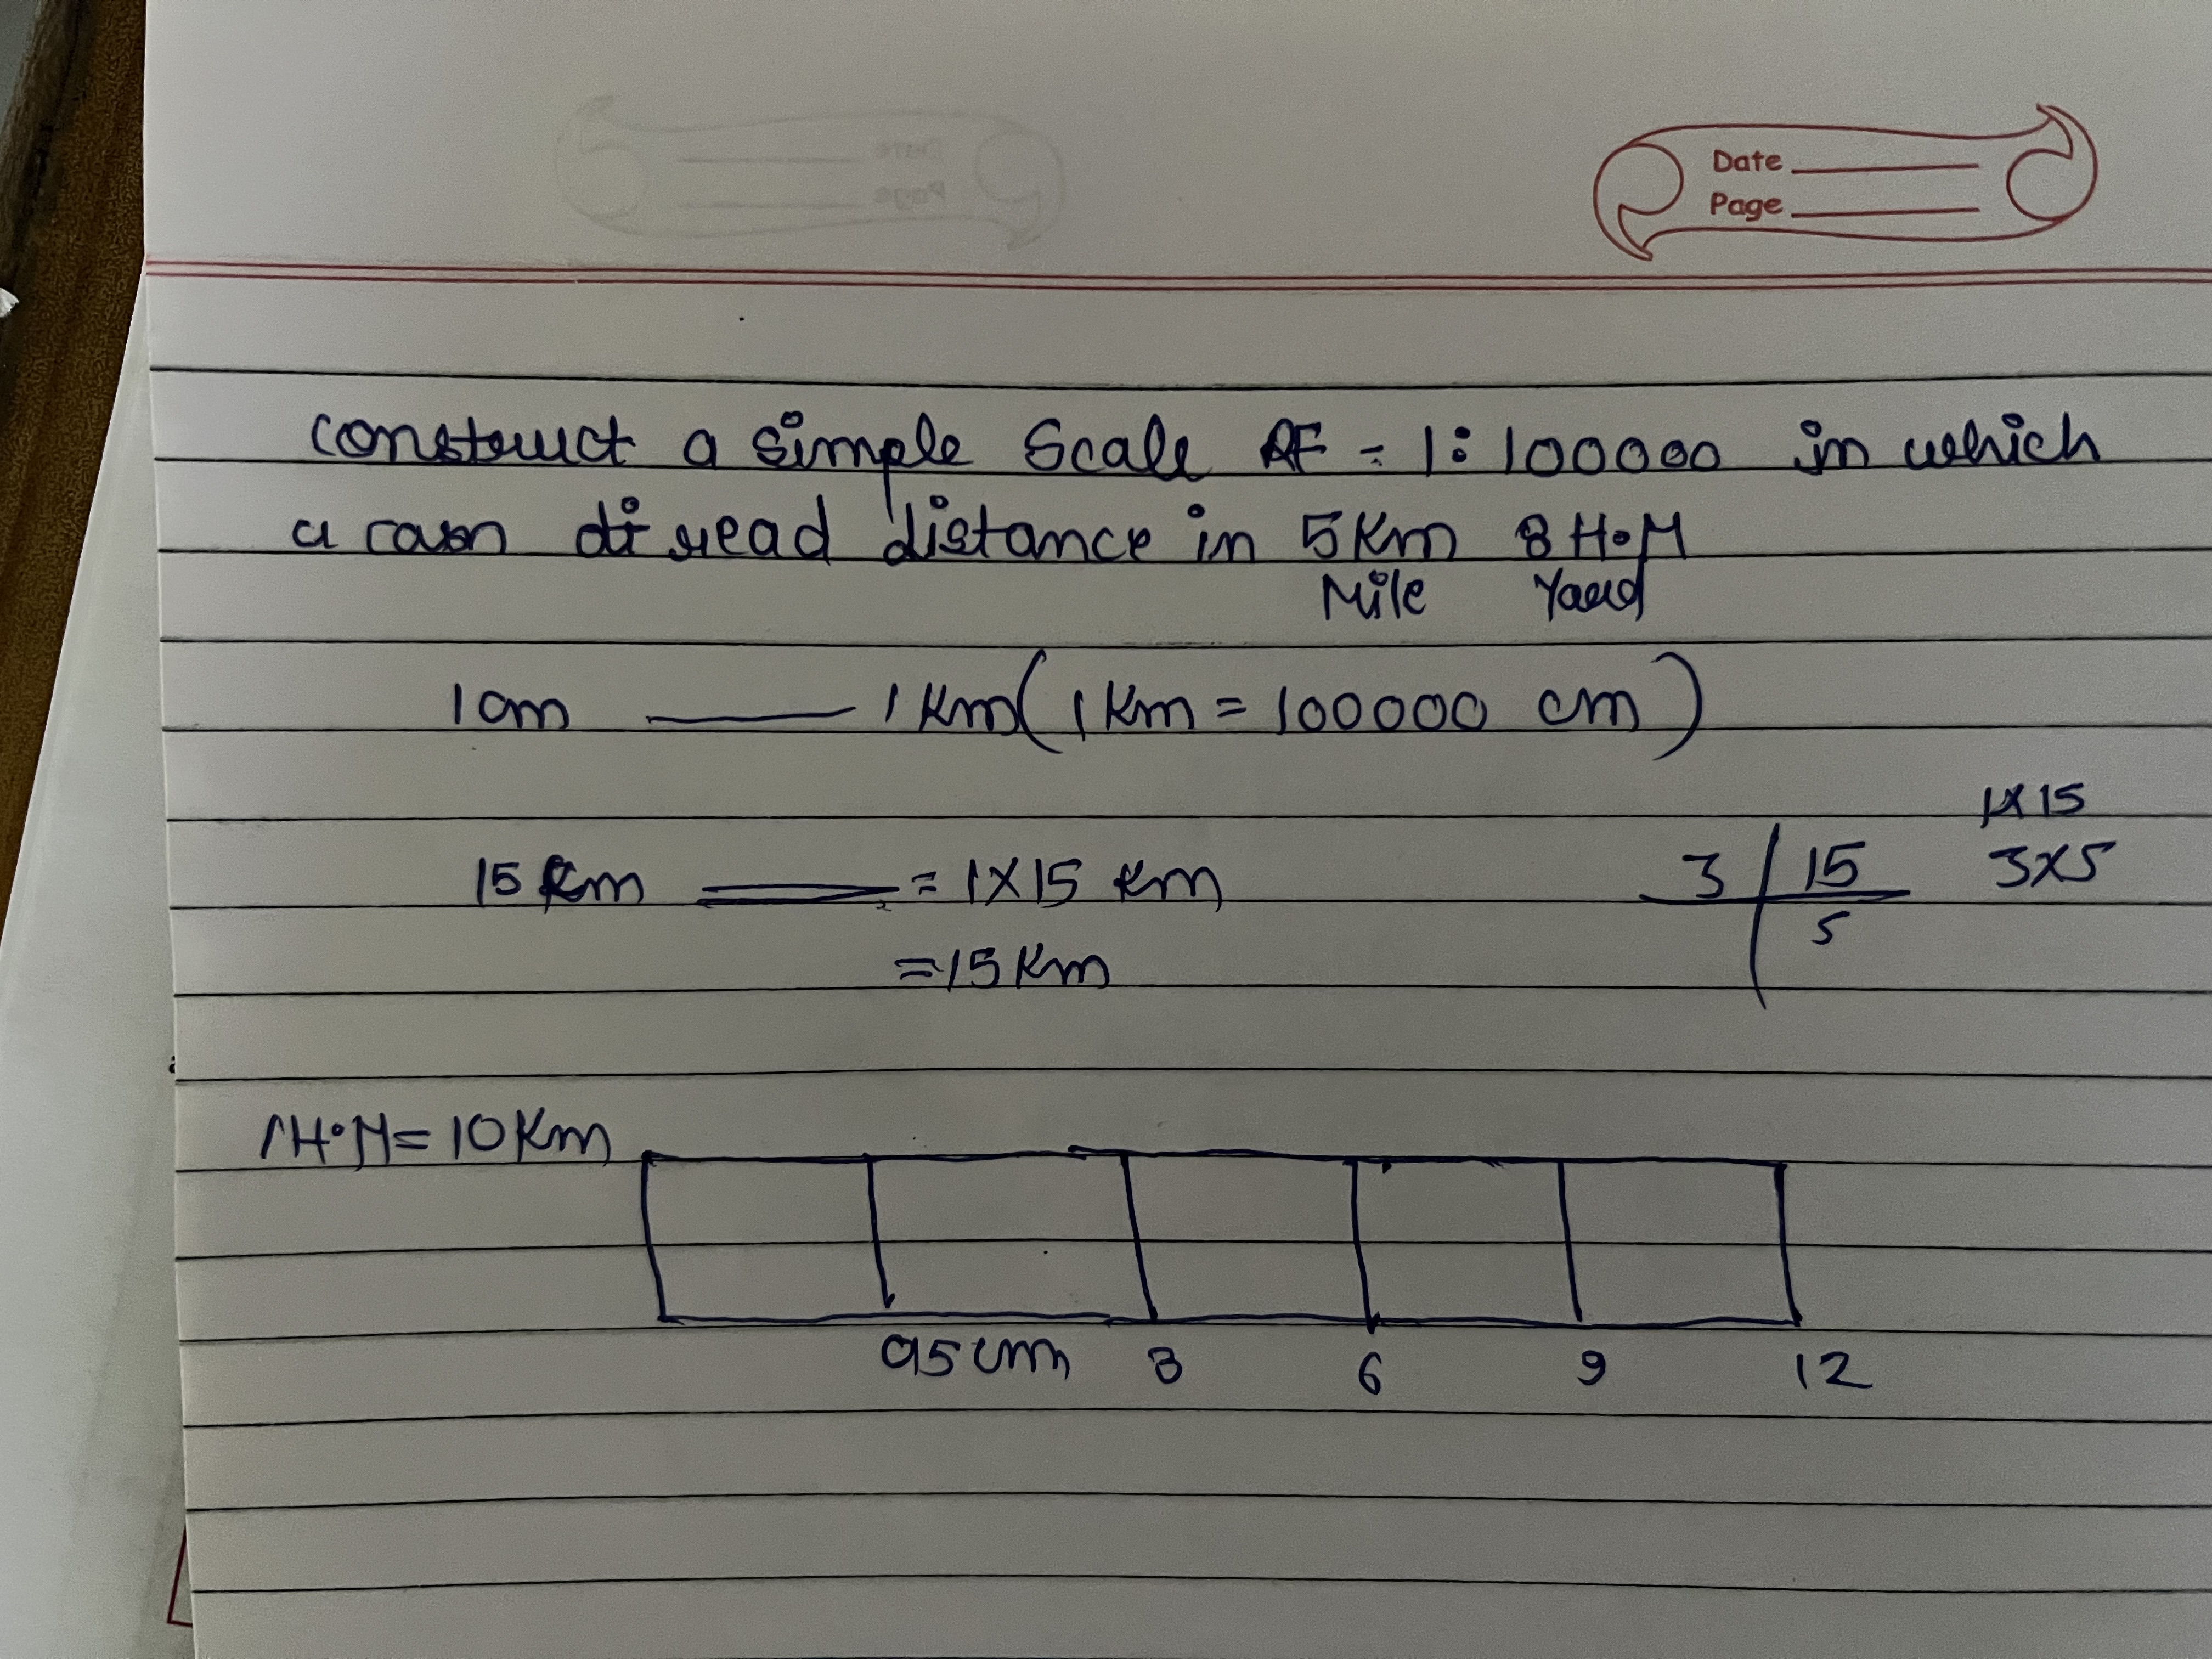 Date
Page
construct a simple Scale RF = 1:100000 in which
a can di read distance in 5Km 8 H.M
Mile Yard
1cm — 1 Km (1 Km = 100000 cm)
1X15
15 Km = 1X15 Km
3 15 3X5
5
=15 Km
1H.M = 10 Km
95cm 3 6 9 12